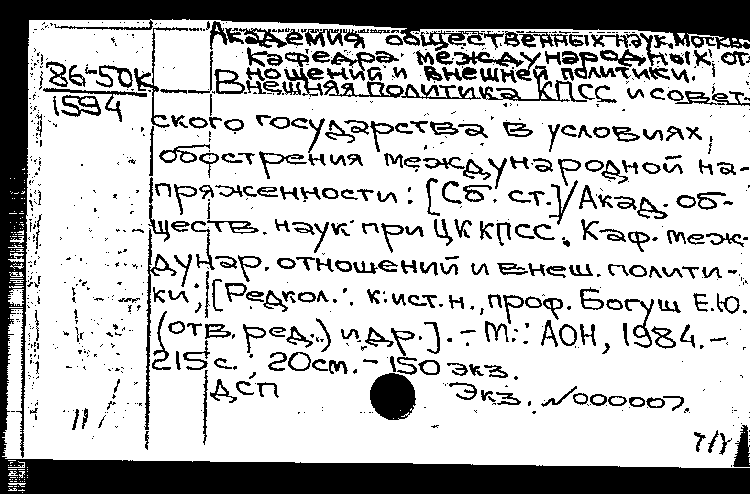 Академия общественных наук. Москва
Кафедра международных от-
86-50к
1594
ношений и внешней политики.
Внешняя политика КПСС и совет-
ского государства в условиях
обострения международной на-
пряженности: [Сб. ст.]/Акад. об-
ществ. наук при ЦК КПСС, Каф. меж-
дунар. отношений и внеш. полити-
ки; [Редкол.: к.ист.н., проф. Богуш Е.Ю.
(отв. ред.) и др.]. - М.: АОН, 1984. -
215 с.; 20 см. - 150 экз.
ДСП Экз. №000007.